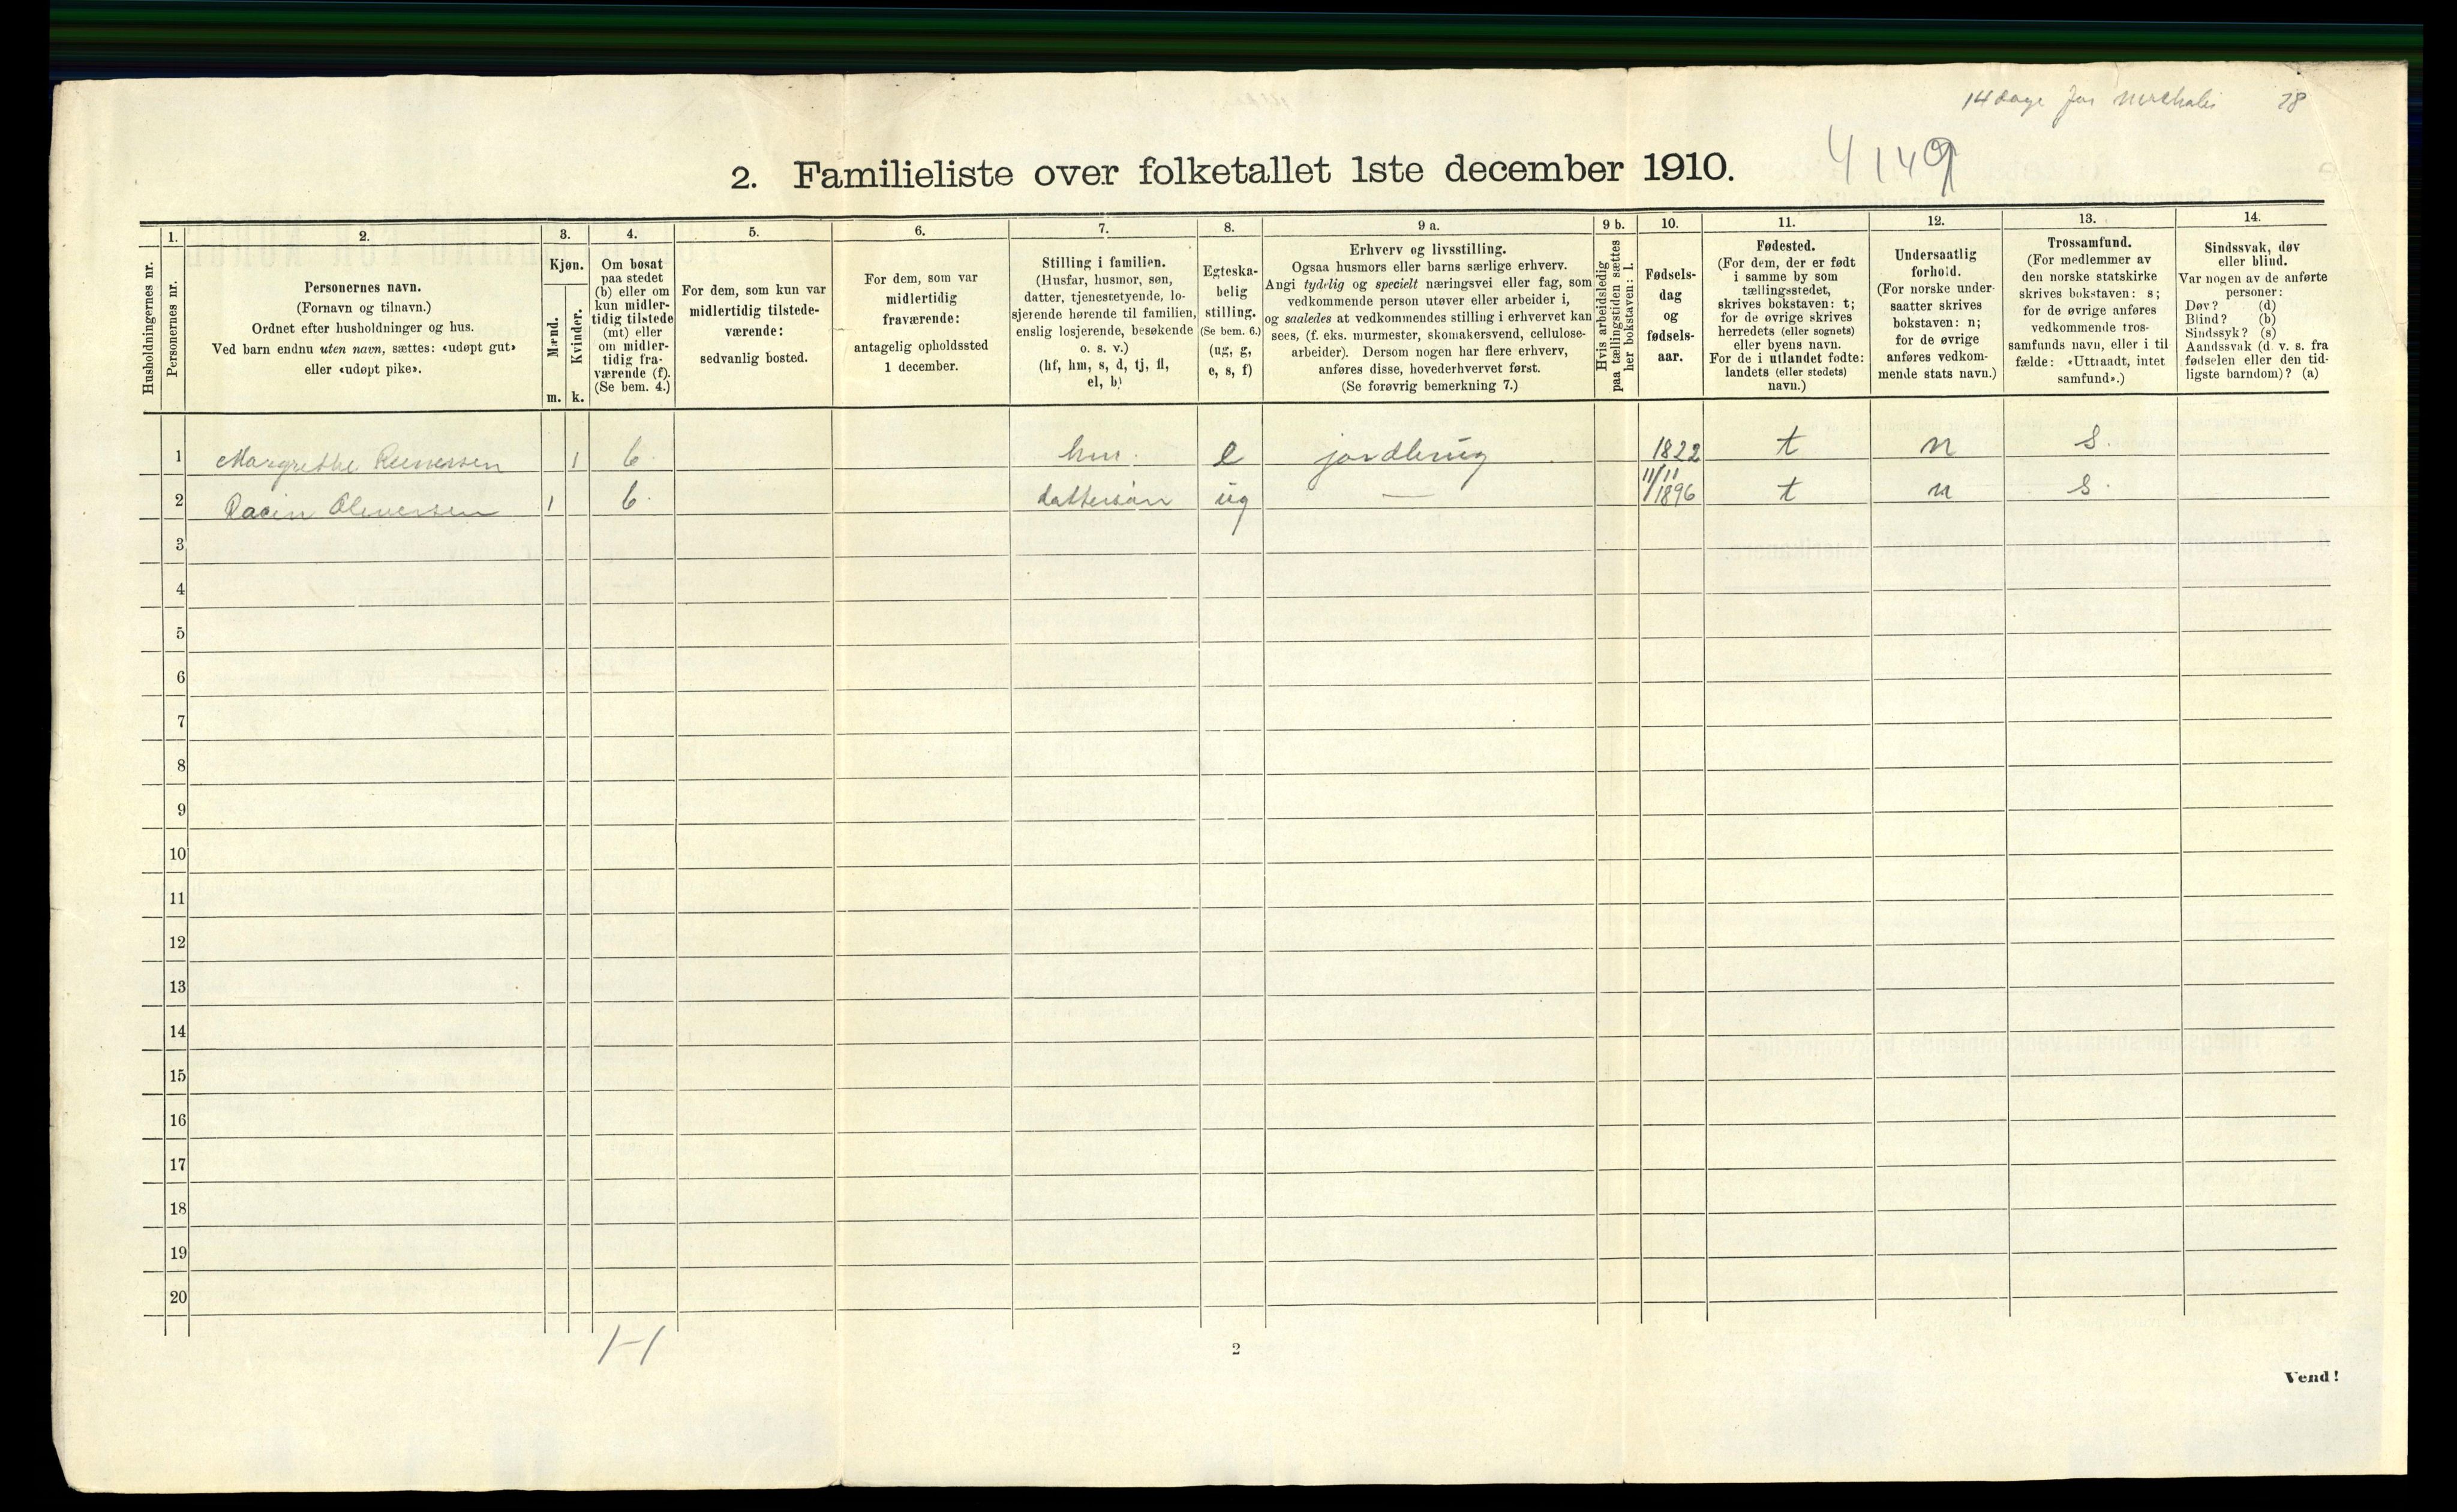 14 dage før 28
2. Familieliste over folketallet 1ste december 1910.
4149
Husholdningernes nr.
1.
Personernes nr.
2.
Personernes navn.
(Fornavn og tilnavn.)
Ordnet efter husholdninger og hus.
Ved barn endnu uten navn, sættes: «udøpt gut»
eller «udøpt pike».
3.
Kjøn.
Mænd.
Kvinder.
m. k.
4.
Om bosat
paa stedet
(b) eller om
kun midler-
tidig tilstede
(mt) eller
om midler-
tidig fra-
værende (f).
(Se bem. 4.)
5.
For dem, som kun var
midlertidig tilstede-
værende:
sedvanlig bosted.
6.
For dem, som var
midlertidig
fraværende:
antagelig opholdssted
1 december.
7.
Stilling i familien.
(Husfar, husmor, søn,
datter, tjenestetyende, lo-
sjerende hørende til familien,
enslig losjerende, besøkende
o. s. v.)
(hf, hm, s, d, tj, fl,
el, b)
8.
Egteska-
belig
stilling.
(Se bem. 6.)
(ug, g,
e, s, f)
9 a.
Erhverv og livsstilling.
Ogsaa husmors eller barns særlige erhverv.
Angi tydelig og specielt næringsvei eller fag, som
vedkommende person utøver eller arbeider i,
og saaledes at vedkommendes stilling i erhvervet kan
sees, (f. eks. murmester, skomakersvend, cellulose-
arbeider). Dersom nogen har flere erhverv,
anføres disse, hovederhvervet først.
(Se forøvrig bemerkning 7.)
9 b.
Hvis arbeidsledig
paa tællingstiden sættes
her bokstaven: l.
10.
Fødsels-
dag
og
fødsels-
aar.
11.
Fødested.
(For dem, der er født
i samme by som
tællingsstedet,
skrives bokstaven: t;
for de øvrige skrives
herredets (eller sognets)
eller byens navn.
For de i utlandet fødte:
landets (eller stedets)
navn.)
12.
Undersaatlig
forhold.
(For norske under-
saatter skrives
bokstaven: n;
for de øvrige
anføres vedkom-
mende stats navn.)
13.
Trossamfund.
(For medlemmer av
den norske statskirke
skrives bokstaven: s;
for de øvrige anføres
vedkommende tros-
samfunds navn, eller i til
fælde: «Uttraadt, intet
samfund».)
14.
Sindssvak, døv
eller blind.
Var nogen av de anførte
personer:
Døv? (d)
Blind? (b)
Sindssyk? (s)
Aandssvak (d. v. s. fra
fødselen eller den tid-
ligste barndom)? (a)
1 Margrethe 1 b. hm. e jordbrug 1822 t n s.
2 1 b. dattersøn ug — 11/11 1896 t n s.
3
4
5
6
7
8
9
10
11
12
13
14
15
16
17
18
19
20
1-1
2
Vend!